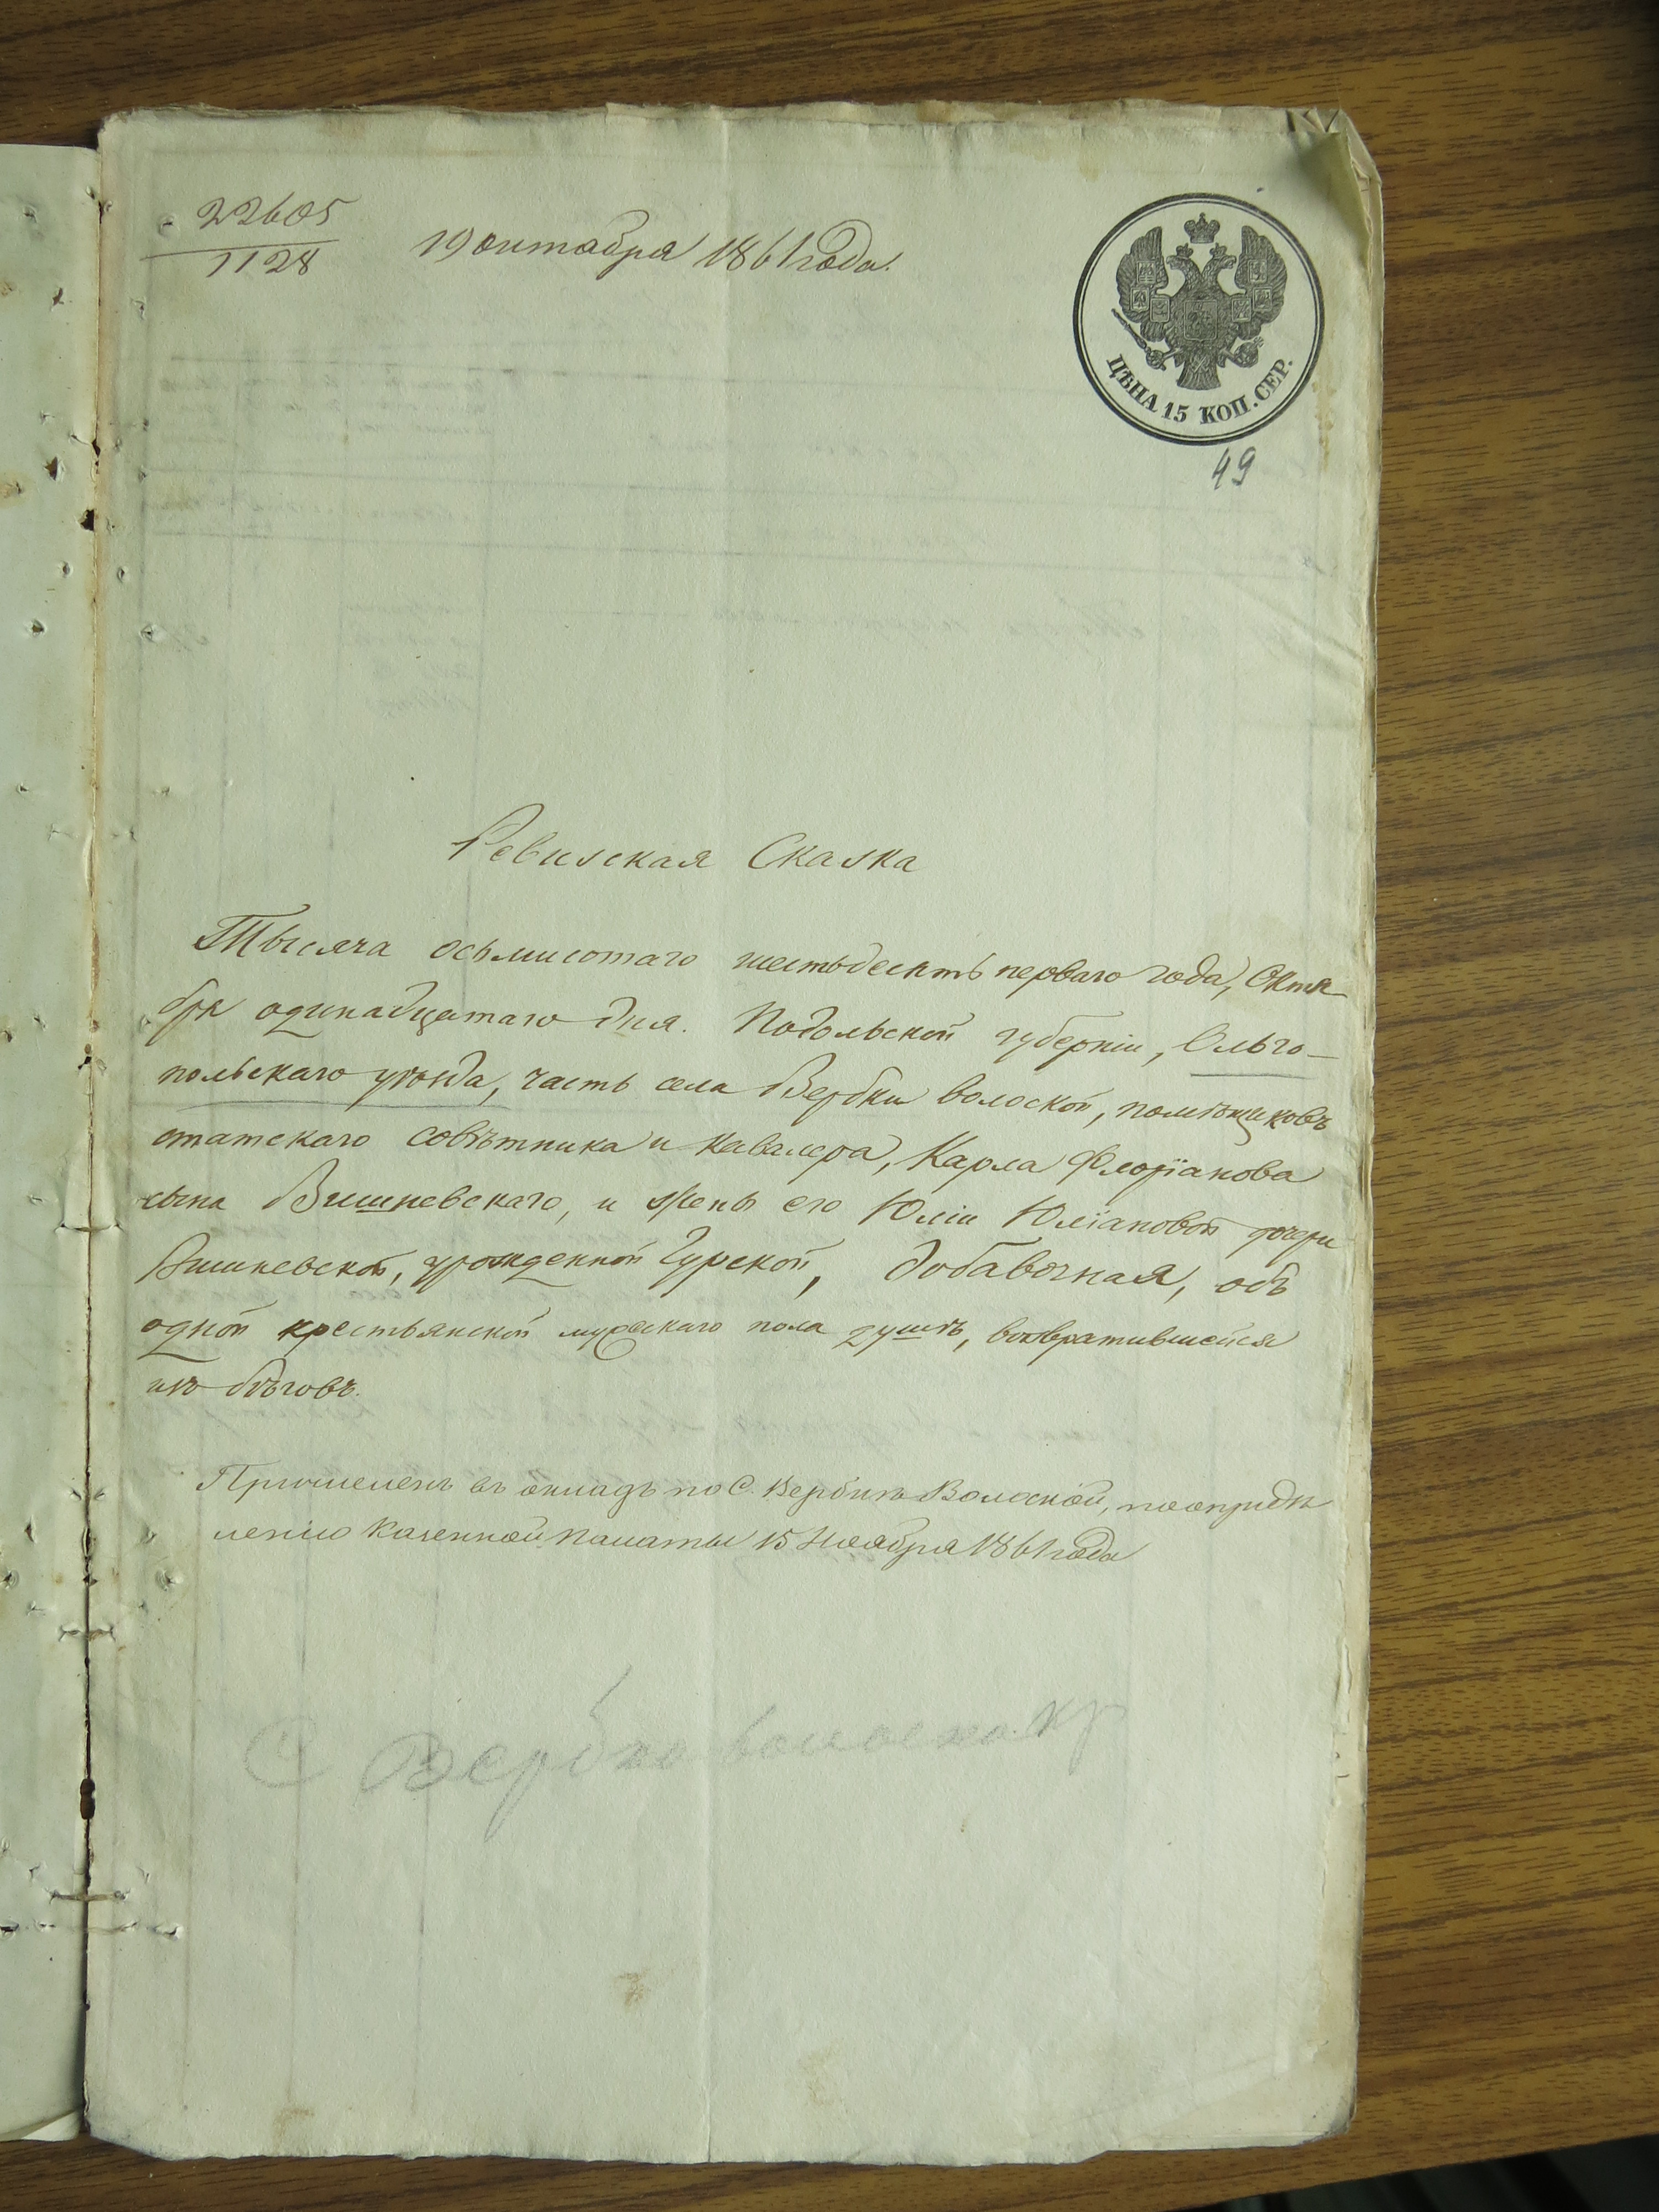 22605
1128
19 октября 1861 года.
ЦѢНА 15 КОП. СЕР.
49
Ревизская Сказка
Тысяча осьмисотаго шестьдесятъ перваго года, Октя-
бря одинадцатаго дня. Подольской губерніи, Ольго-
польскаго уѣзда, часть села Вербки волоской, помѣщиковъ
статскаго совѣтника и Кавалера, Карла Флоріанова
сына Вишневскаго, и жены его Юліи Юліановой дочери
Вишневской, урожденной Гурской, добавочная, объ
одной крестьянской мужскаго пола душѣ, возвратившейся
изъ бѣговъ.
Причисленъ въ окладъ по С. Вербкѣ Волоской, по опредѣ
ленію Казенной Палаты 15 Ноября 1861 года
С Вербка волоска кр